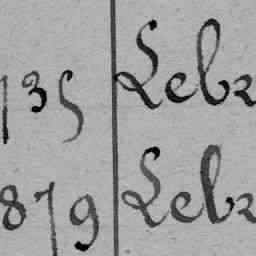 135 Lebr
879 Lebr